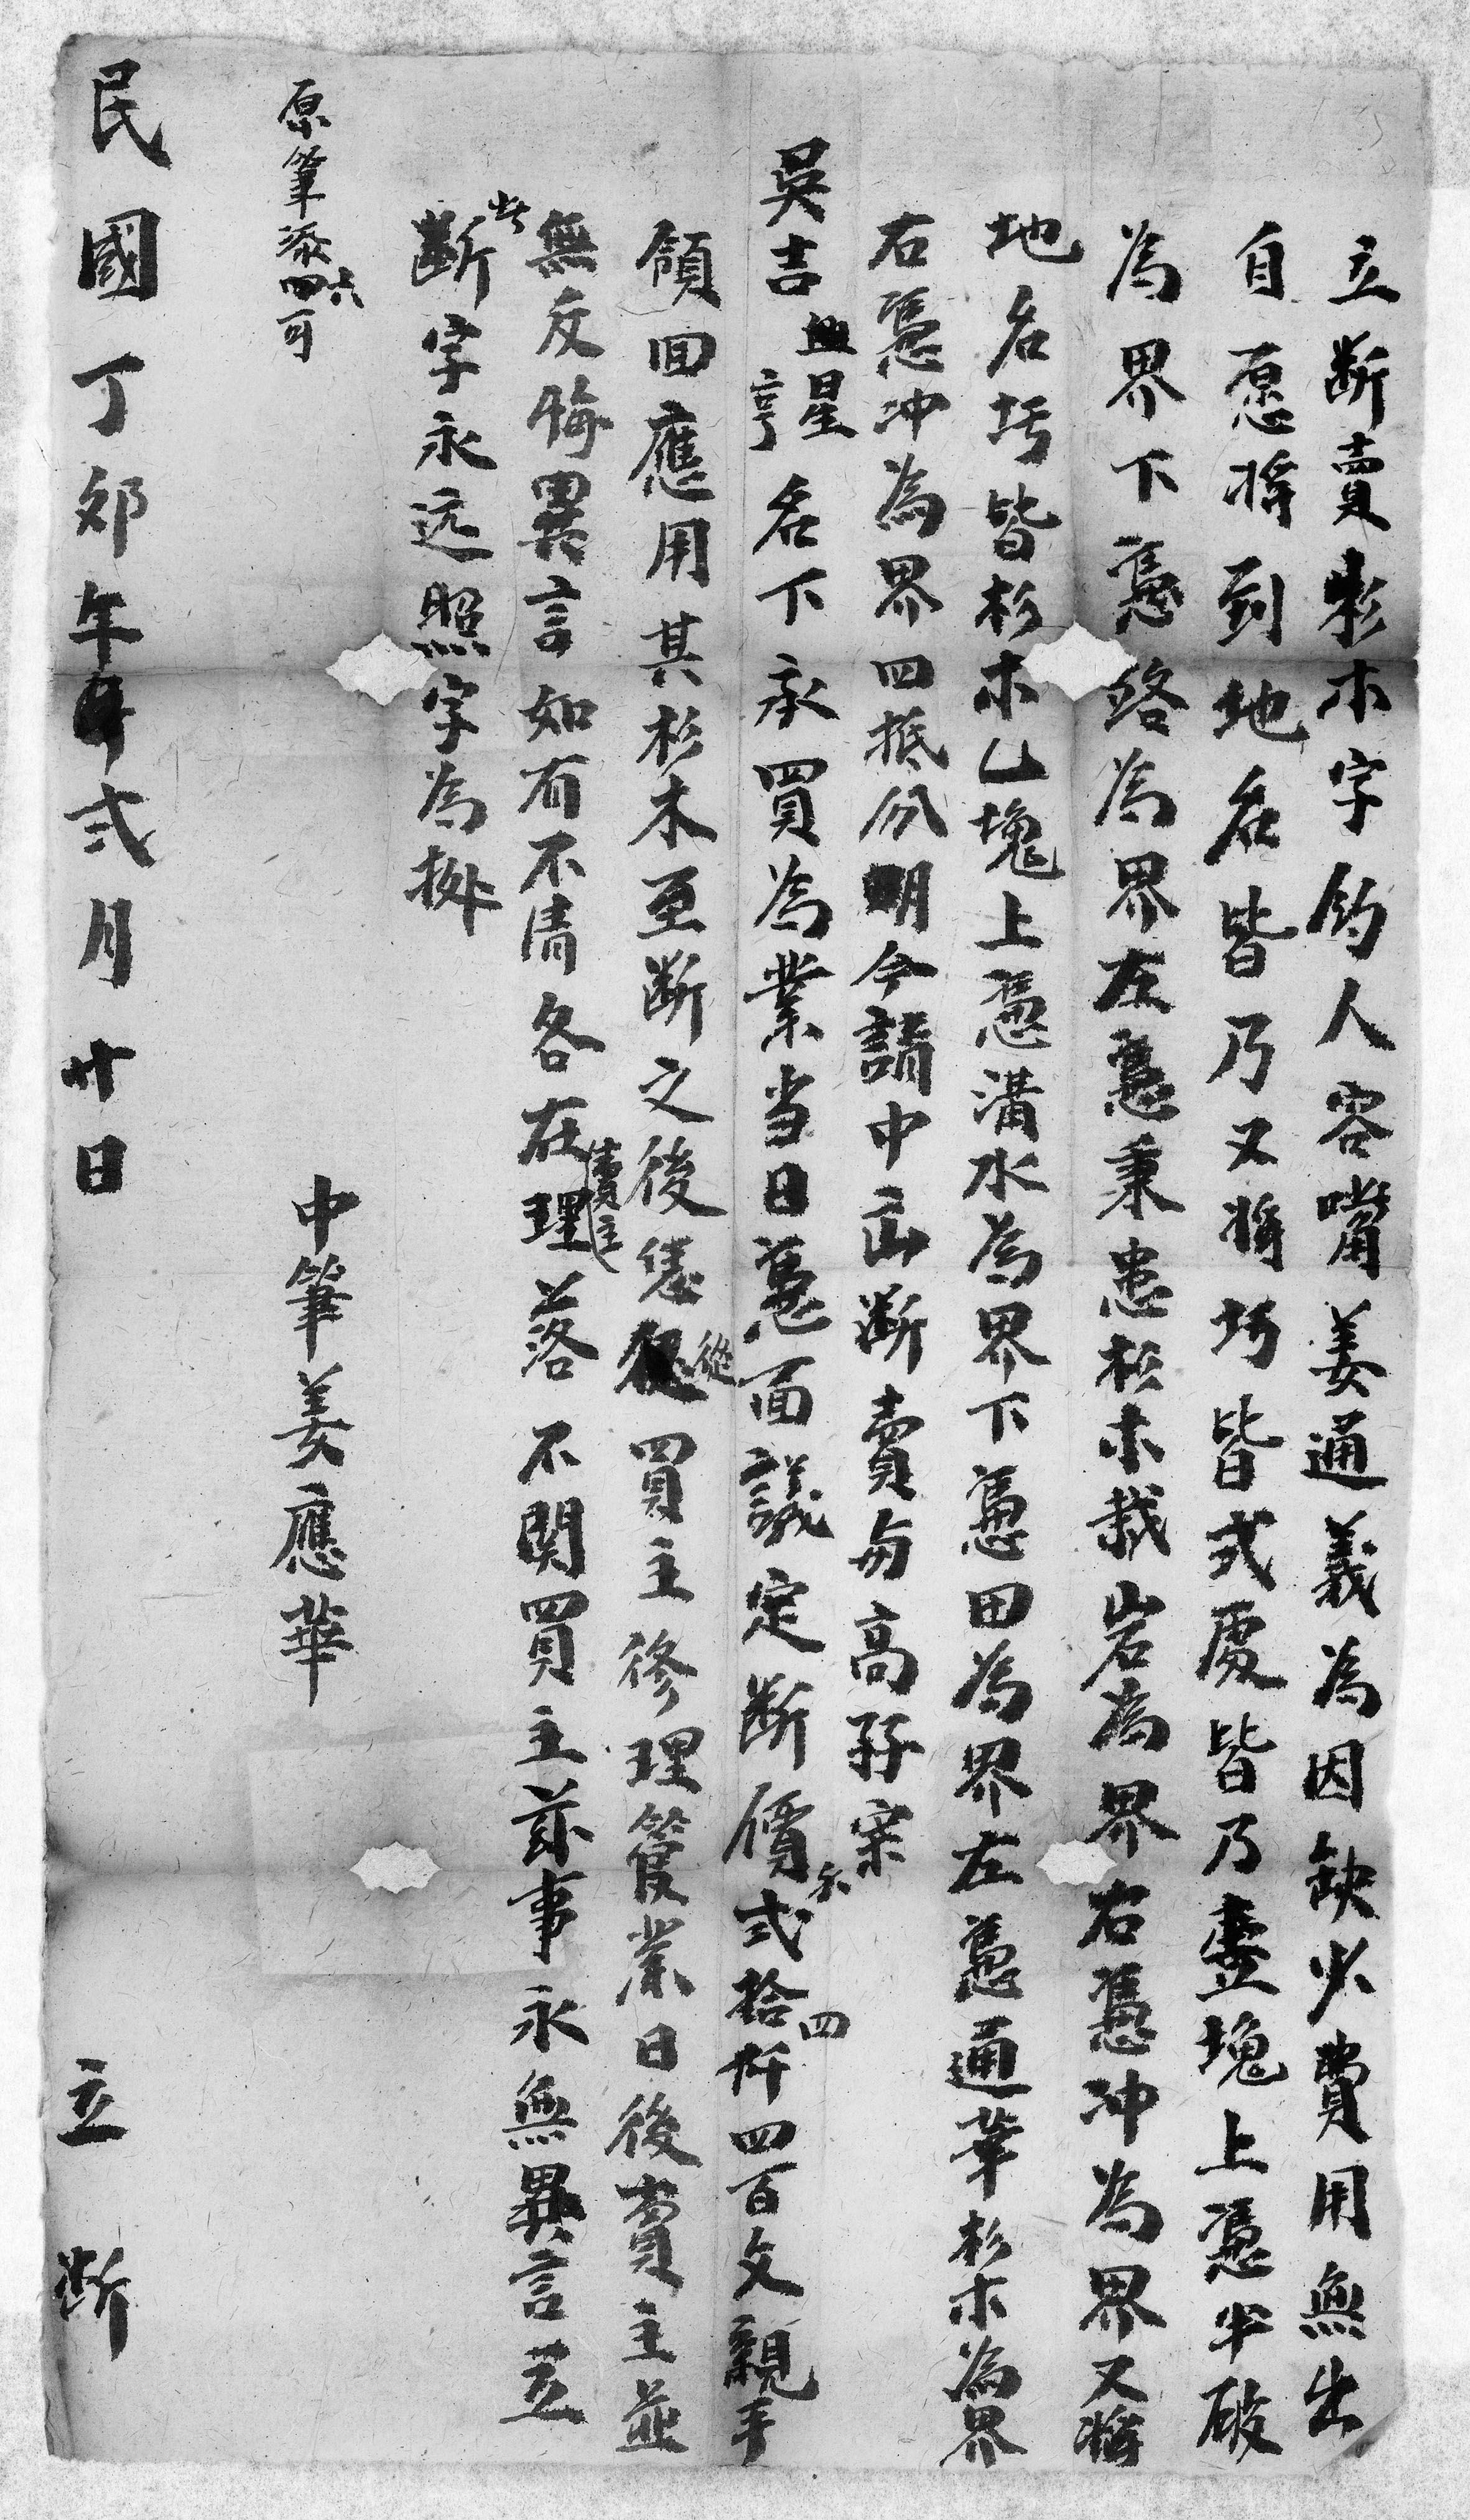 立断賣彬木字約人容嘴姜通義為因缺少費用無出
自愿將到地名皆乃又將圬皆弍處皆乃壹塊上憑半破
為界下憑路為界左憑秉忠杉木栽岩為界右憑冲為界又將
地名圬皆杉木乙塊上憑溝水為界下憑田為界左憑通華杉木為界
右憑冲為界四抵分明今請中出断賣與高孖宗
吳吉星亨名下承買為業当日憑面議定断價弍拾四仟四百文親手
領回應用其杉木至断之後恁從買主修理管業日後賣主並
無反悔異言如有不清各在賣主理落不関買主茲事永無異言立
此断字永远照字為拠
原筆添六四可
中筆姜應華
民國丁卯年弍月廿日 立断